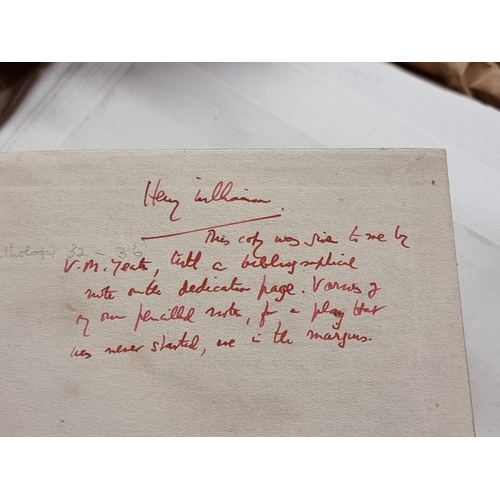 Henry Williamson.
This copy was given to me by
thology 32 - 36
V.M. Yeats, with a bibliographical
note on the dedication page. Various of
my own pencilled notes, for a play that
was never started, are in the margins.